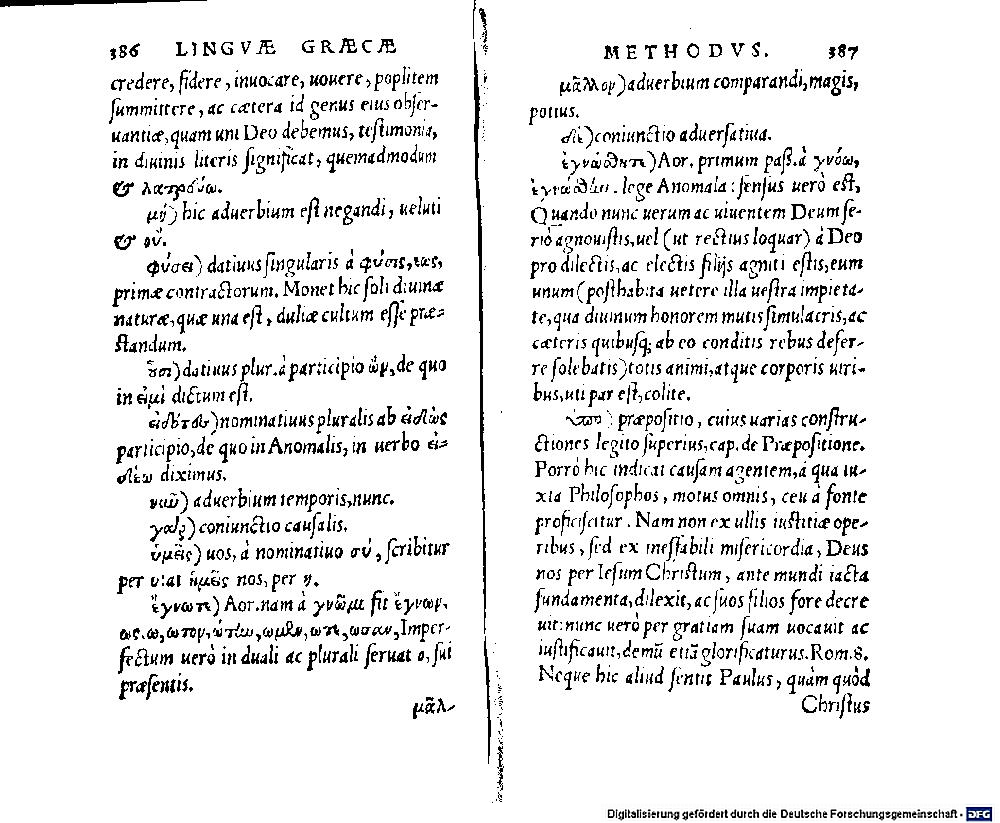 386 LINGVÆ GRÆCÆ
credere, fidere, inuocare, uouere, poplitem
summittere, ac cætera id genus eius obser-
uantiæ, quam uni Deo debemus, testimonia,
in diuinis literis significat, quemadmodum
& λατρεύω.
μή) hic aduerbium est negandi, ueluti
& οὐ.
φύσει) datiuus singularis à φύσις, ιος,
primæ contractorum. Monet hic soli diuinæ
naturæ, quæ una est, duliæ cultum esse præ-
standum.
οὖσι) datiuus plur. à participio ὤν, de quo
in εἰμὶ dictum est.
εἰδότες) nominatiuus pluralis ab εἰδὼς
participio, de quo in Anomalis, in uerbo εἰ-
δέω diximus.
νῦν) aduerbium temporis, nunc.
γαρ) coniunctio causalis.
ὑμεῖς) uos, à nominatiuo σύ, scribitur
per υ: at ἡμεῖς nos, per η.
ἔγνωτε) Aor. nam à γνῶμι fit ἔγνων,
ως, ω, ωτον, ώτην, ωμεν, ωτε, ωσαν, Imper-
fectum uerò in duali ac plurali seruat ο, sui
præsentis.
μᾶλ-
METHODVS. 387
μᾶλλον) aduerbium comparandi, magis,
potius.
δὲ) coniunctio aduersatiua.
ἐγνώσθητε) Aor. primum pass. à γνόω,
ἐγνώσθην. lege Anomala: sensus uerò est,
Quando nunc uerum ac uiuentem Deum se-
riò agnouistis, uel (ut rectius loquar) à Deo
pro dilectis, ac electis filijs agniti estis, eum
unum (posthabita uetere illa uestra impieta-
te, qua diuinum honorem mutis simulacris, ac
cæteris quibusq; ab eo conditis rebus defer-
re solebatis) totis animi, atque corporis uiri-
bus, uti par est, colite.
ὑπο) præpositio, cuius uarias constru-
ctiones legito superius, cap. de Præpositione.
Porrò hic indicat causam agentem, à qua iu-
xta Philosophos, motus omnis, ceu à fonte
proficiscitur. Nam non ex ullis iustitiæ ope-
ribus, sed ex ineffabili misericordia, Deus
nos per Iesum Christum, ante mundi iacta
fundamenta, dilexit, ac suos filios fore decre
uit: nunc uerò per gratiam suam uocauit ac
iustificauit, demū etiā glorificaturus. Rom. 8.
Neque hic aliud sentit Paulus, quàm quòd
Christus
Digitalisierung gefördert durch die Deutsche Forschungsgemeinschaft - DFG